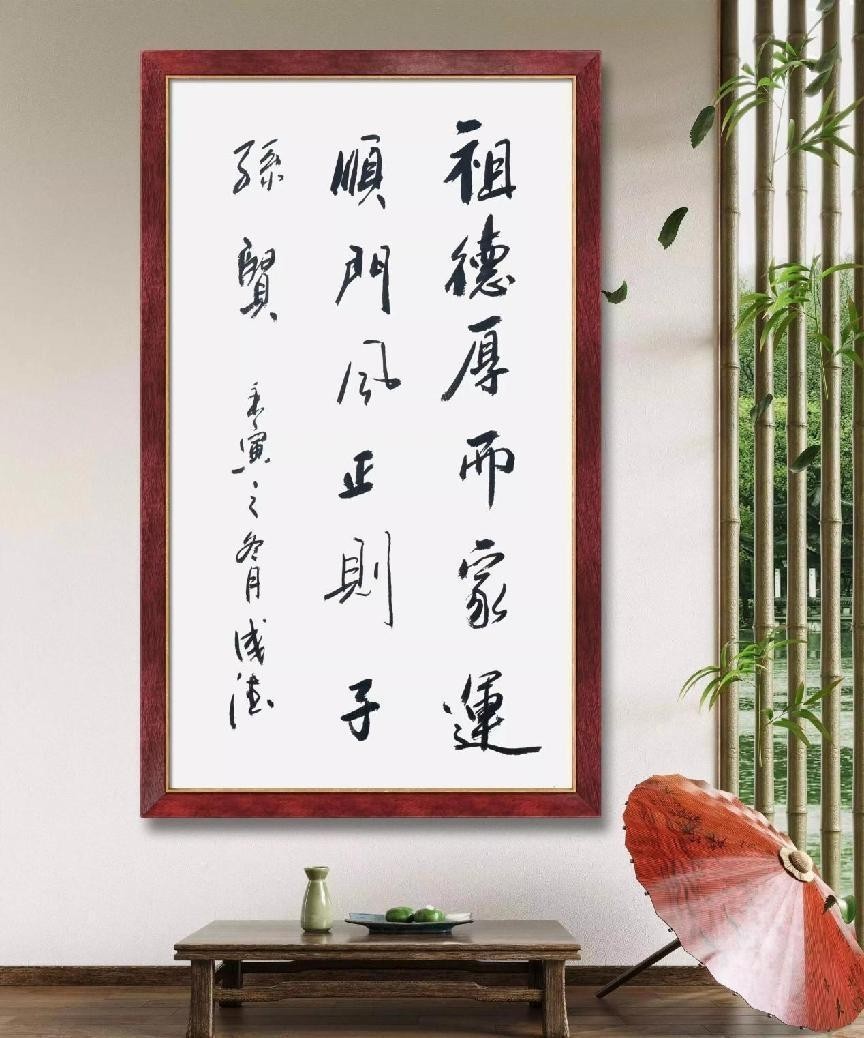 祖德厚而家運
順門风正則子
孫賢
寅之冬月